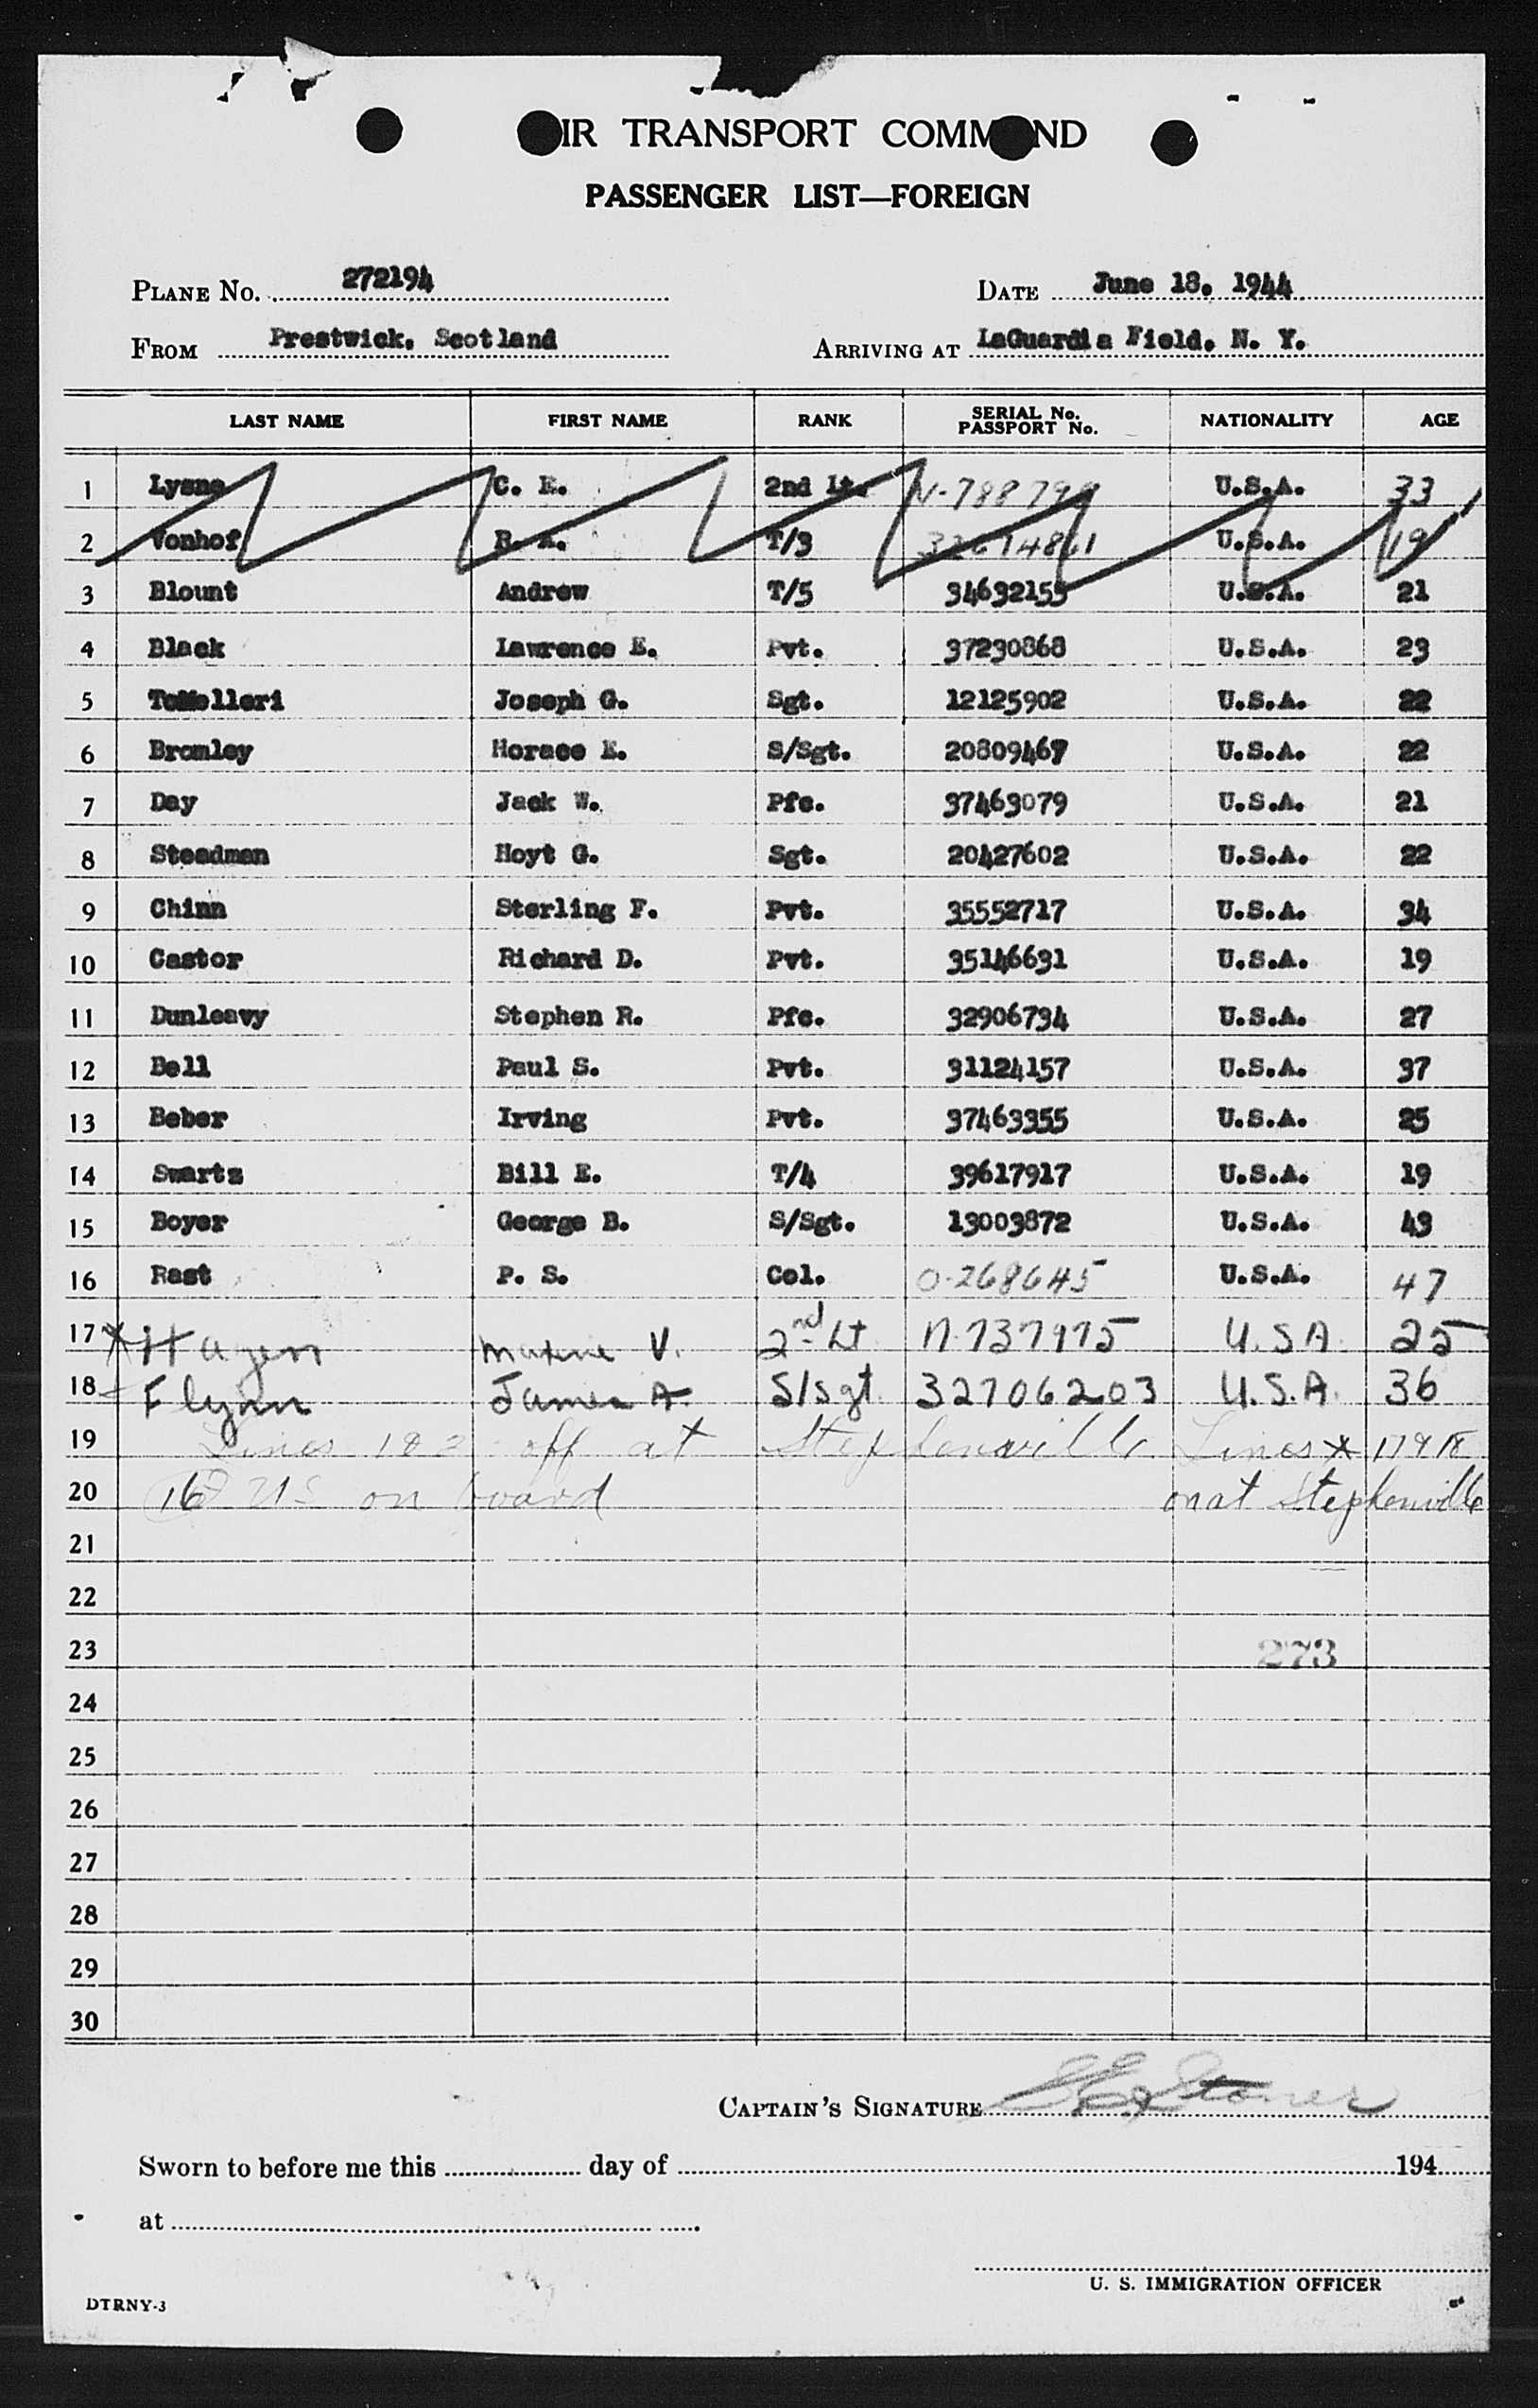 AIR TRANSPORT COMMAND
PASSENGER LIST—FOREIGN
PLANE No. 272194 DATE June 18, 1944
FROM Prestwick, Scotland ARRIVING AT LaGuardia Field, N. Y.
LAST NAME FIRST NAME RANK SERIAL No. PASSPORT No. NATIONALITY AGE
1 Lysne C. E. 2nd Lt. U.S.A. 33
2 Vonhof R. A. T/3 U.S.A. 19
3 Blount Andrew T/5 34632155 U.S.A. 21
4 Black Lawrence E. Pvt. 37230868 U.S.A. 23
5 Joseph G. Sgt. 12125902 U.S.A. 22
6 Bromley Horace E. S/Sgt. 20809467 U.S.A. 22
7 Day Jack W. Pfc. 37463079 U.S.A. 21
8 Steadman Hoyt G. Sgt. 20427602 U.S.A. 22
9 Chinn Sterling F. Pvt. 35552717 U.S.A. 34
10 Castor Richard D. Pvt. 35146631 U.S.A. 19
11 Dunleavy Stephen R. Pfc. 32906734 U.S.A. 27
12 Bell Paul S. Pvt. 31124157 U.S.A. 37
13 Beber Irving Pvt. 37463355 U.S.A. 25
14 Swartz Bill E. T/4 39617917 U.S.A. 19
15 Boyer George B. S/Sgt. 13003872 U.S.A. 43
16 Rast P. S. Col. O-268645 U.S.A. 47
17 * Hagen Maxine V. 2nd Lt N-737975 U.S.A. 25
18 Flynn James A. S/Sgt. 32706203 U.S.A. 36
19 Lines 1 & 2 off at Stephenville Lines * 17 & 18
20 16 US on board on at Stephenville
21
22
23 273
24
25
26
27
28
29
30
CAPTAIN'S SIGNATURE Stoner
Sworn to before me this day of 194
at
U. S. IMMIGRATION OFFICER
DTRNY-3